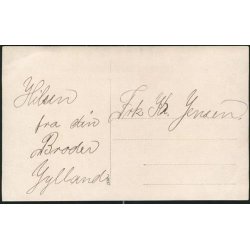 Hilsen
fra din
Broder
Gylland
Frk K. Jensen.